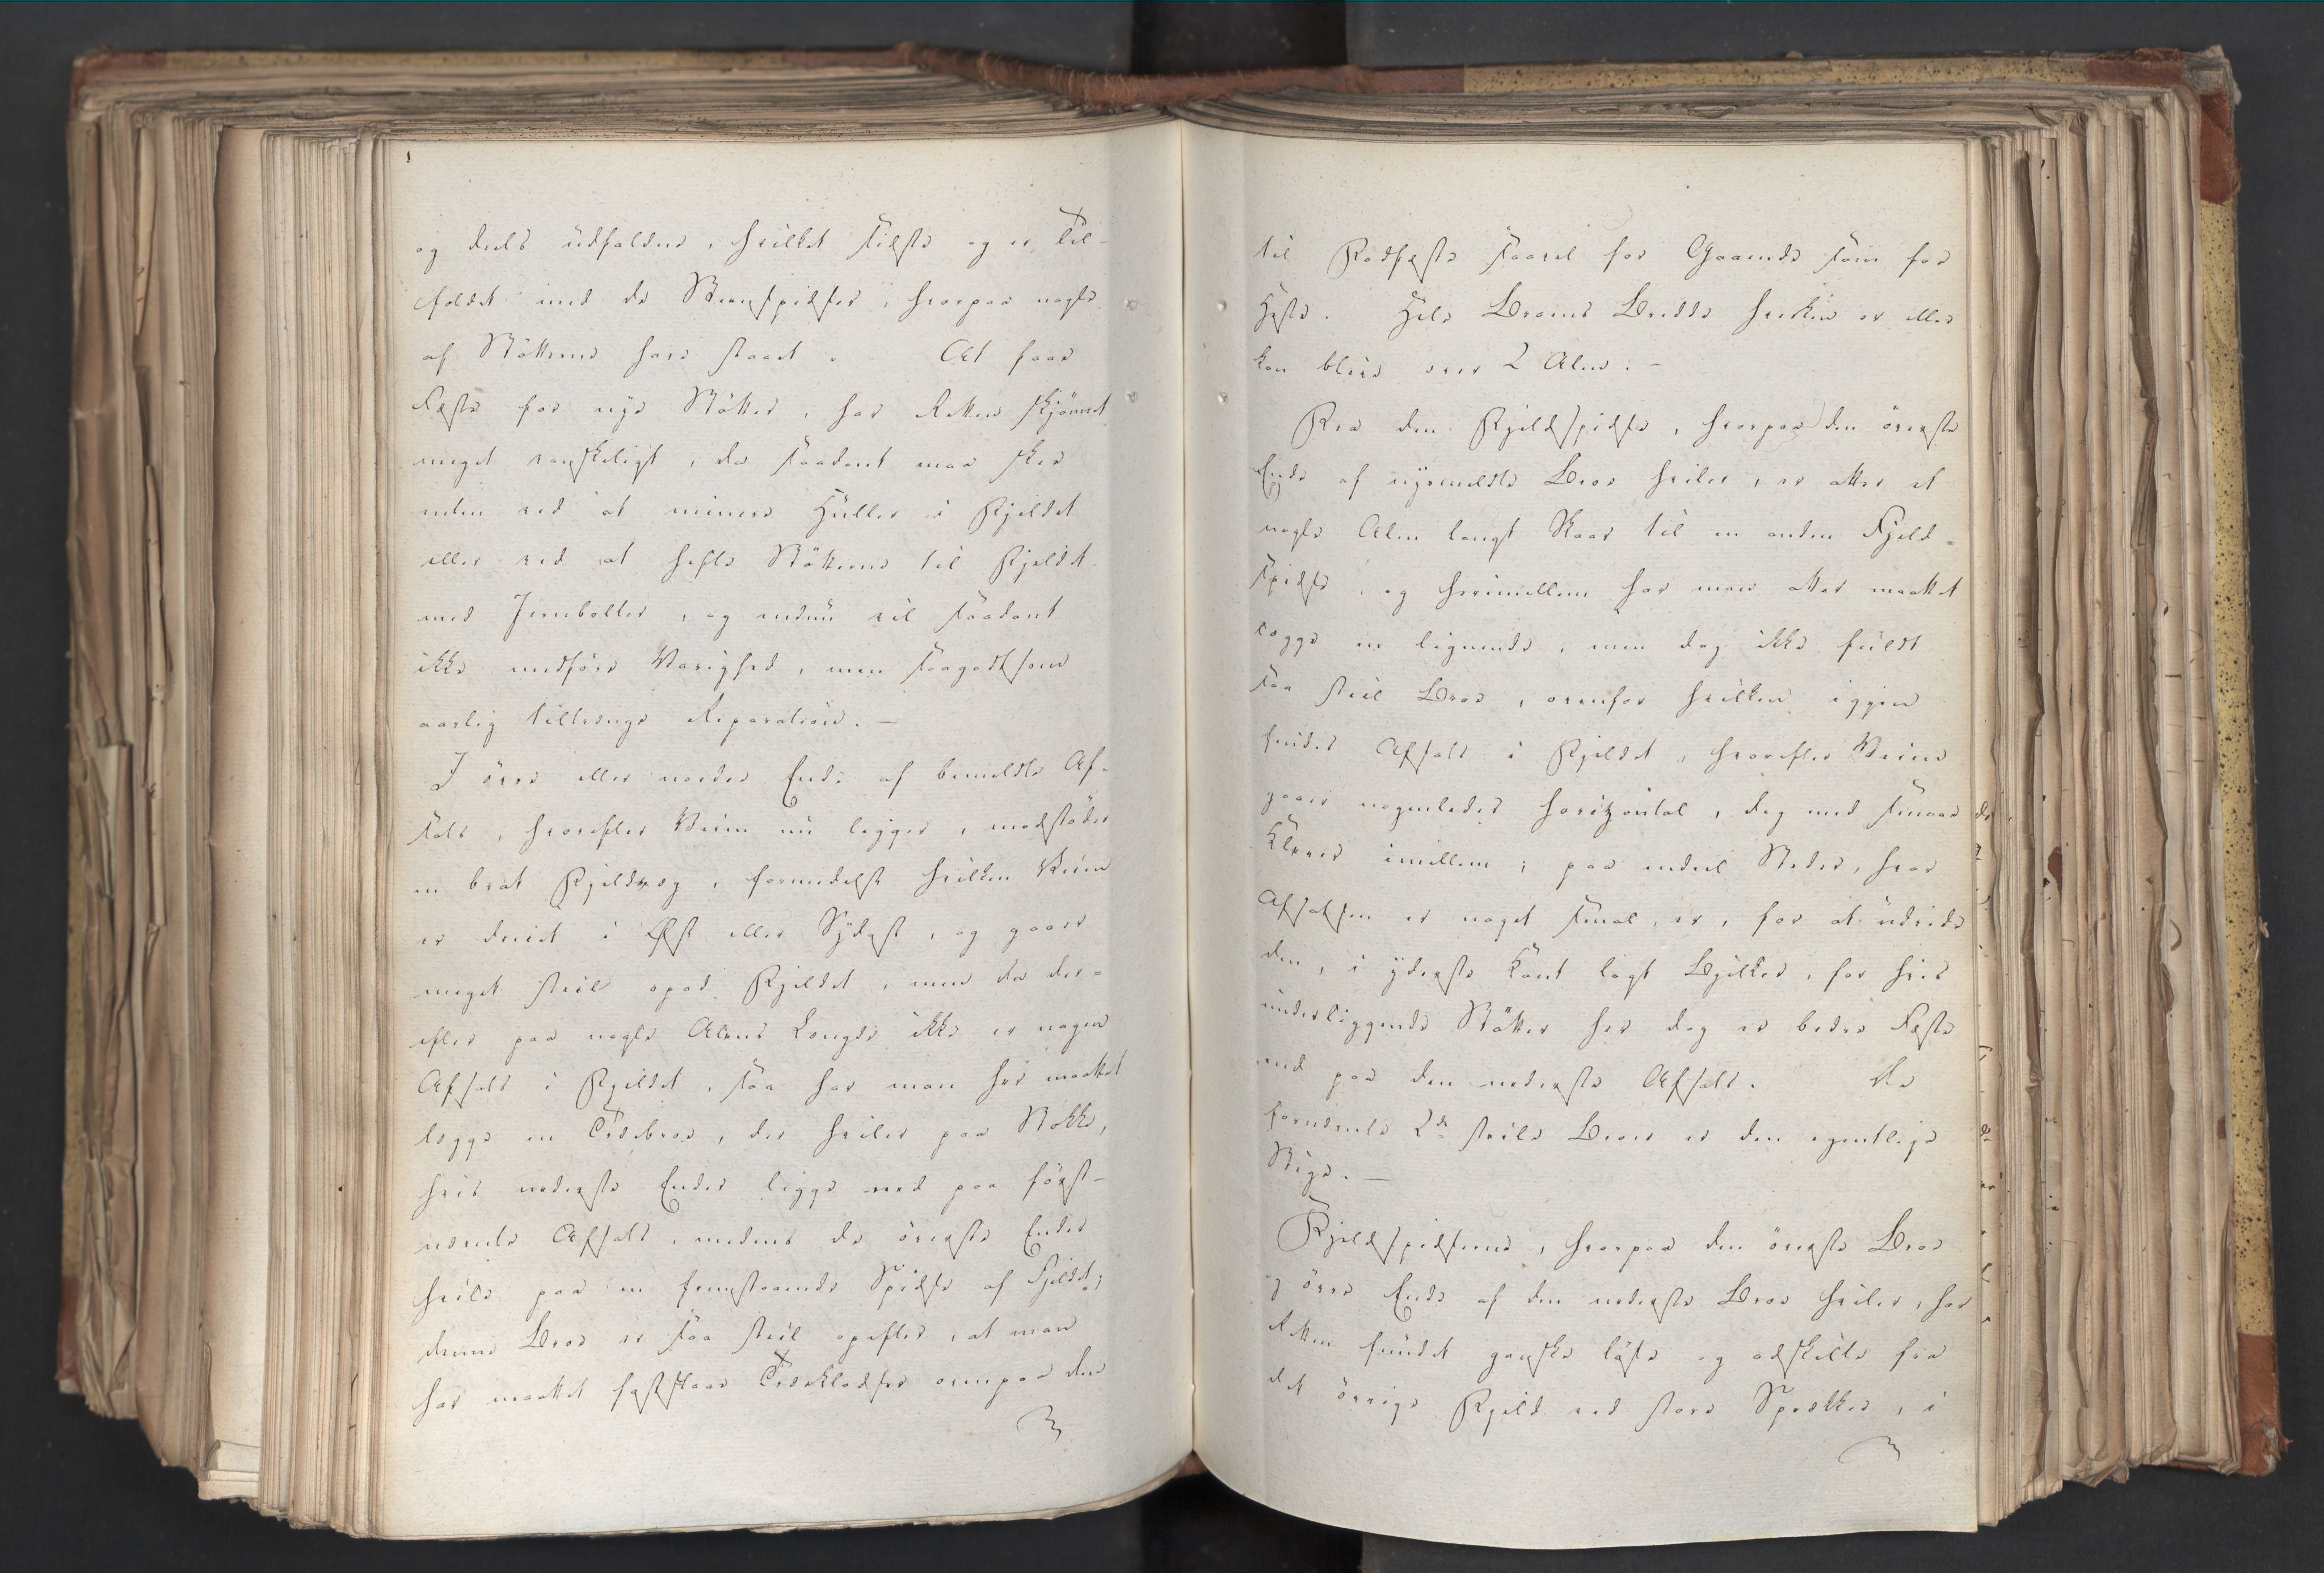 og deels udfaldne, hvilket sidste og er Til-
fældet med de Steenspidser, hvorpaa nogle
af Støtterne have staaet. At faae
Fæste for nye Støtter, har Retten skjönnet
meget vanskeligt, da saadant maa skee
enten ved at minere Huller i Fjeldet
eller ved at hefte Støtterne til Fjeldet
med Jernbolter, og endnu vil saadant
ikke medføre Varighed, men saagodtsom
aarlig tiltrænge Reparation. —
I övre eller nordre Ende af bemeldte Af-
sats, hvorefter Veien nu ligger, modstöder
en brat Fjeldvæg, formedelst hvilken Veien
er dreiet i Øst eller Sydost, og gaaer
meget steil opad Fjeldet, men da der-
efter paa nogle Alens Længde ikke er nogen
Afsats i Fjeldet, saa har man her maattet
lægge en Træebroe, der hviler paa Stokke,
hvis nederste Ender ligge ned paa först-
nævnte Afsats, medens de överste Ender
hvile paa en fremstaaende Spidse af Fjeldet;
denne Broe er saa steil opefter, at man
har maattet fastslaae Træeklodser ovenpaa den
til Fodfæste saavel for Gaaende som for
Heste. Hele Broens Bredde hverken er eller
kan blive over 2 Alen. —
Fra den Fjeldspidse, hvorpaa den överste
Ende af nysmeldte Broe hviler, er atter et
nogle Alen langt Skaar til en anden Fjeld-
spidse, og herimellem har man atter maattet
lægge en lignende, men dog ikke fuldt
saa steil Broe, ovenfor hvilken iggjen
findes Afsats i Fjeldet, hvorefter Veien
gaaer nogenledes horizontal, dog med smaae
Klever imellem; paa endeel Steder, hvor
Afsatsen er noget smal, er, for at udvide
den, i yderste Kant lagt Bjelker, for hvis
underliggende Støtter her dog er bedre Fæste
end paa den nederste Afsats. De
fornævnte 2de steile Broer er den egentlige
Stige. —
Fjeldspidserne, hvorpaa den överste Broe
og övre Ende af den nederste Broe hviler, har
Retten fundet ganske löse og adskilte fra
det övrige Fjeld ved store Sprækker, i